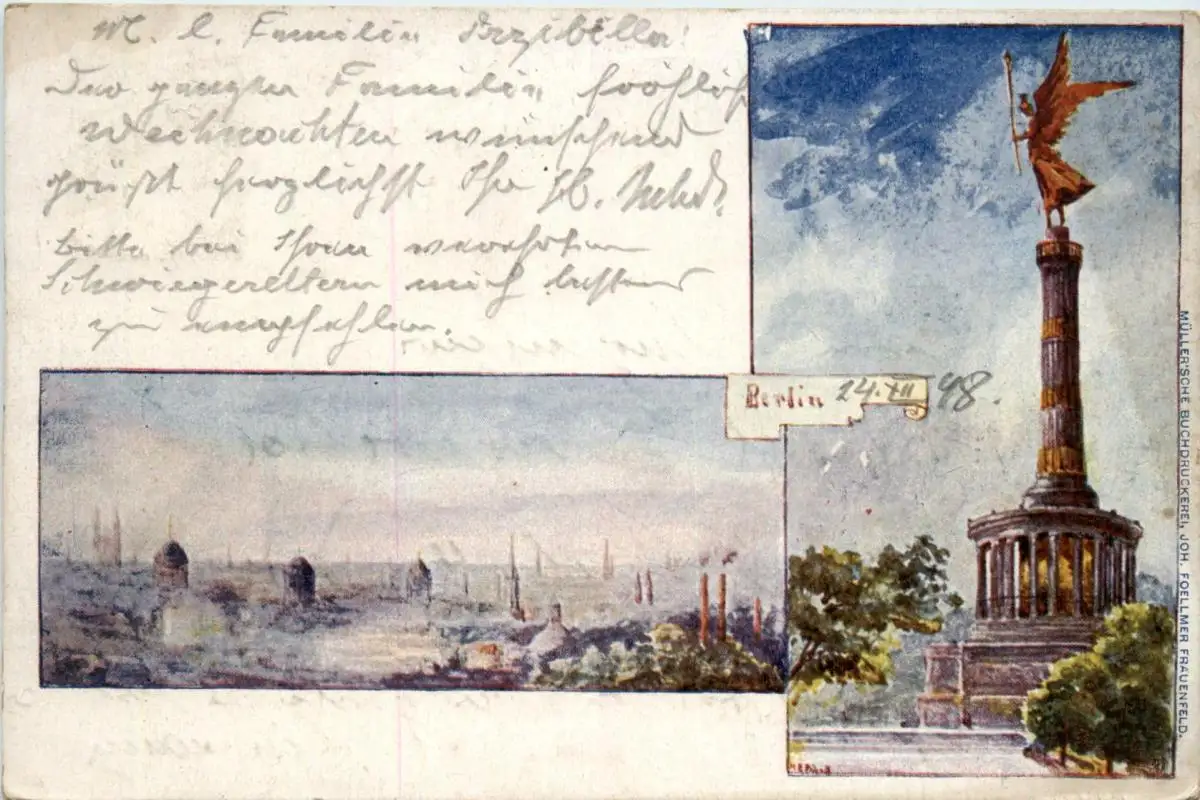 M. l. Familie Przibilla!
Der ganzen Familie fröhlich
Weihnachten wünschend
grüßt herzlichst Ihr
bitte bei Ihren verehrten
Schwiegereltern mich bestens
zu empfehlen.
Berlin 24. XII 98.
MÜLLER'SCHE BUCHDRUCKEREI, JOH. FOELLMER FRAUENFELD.